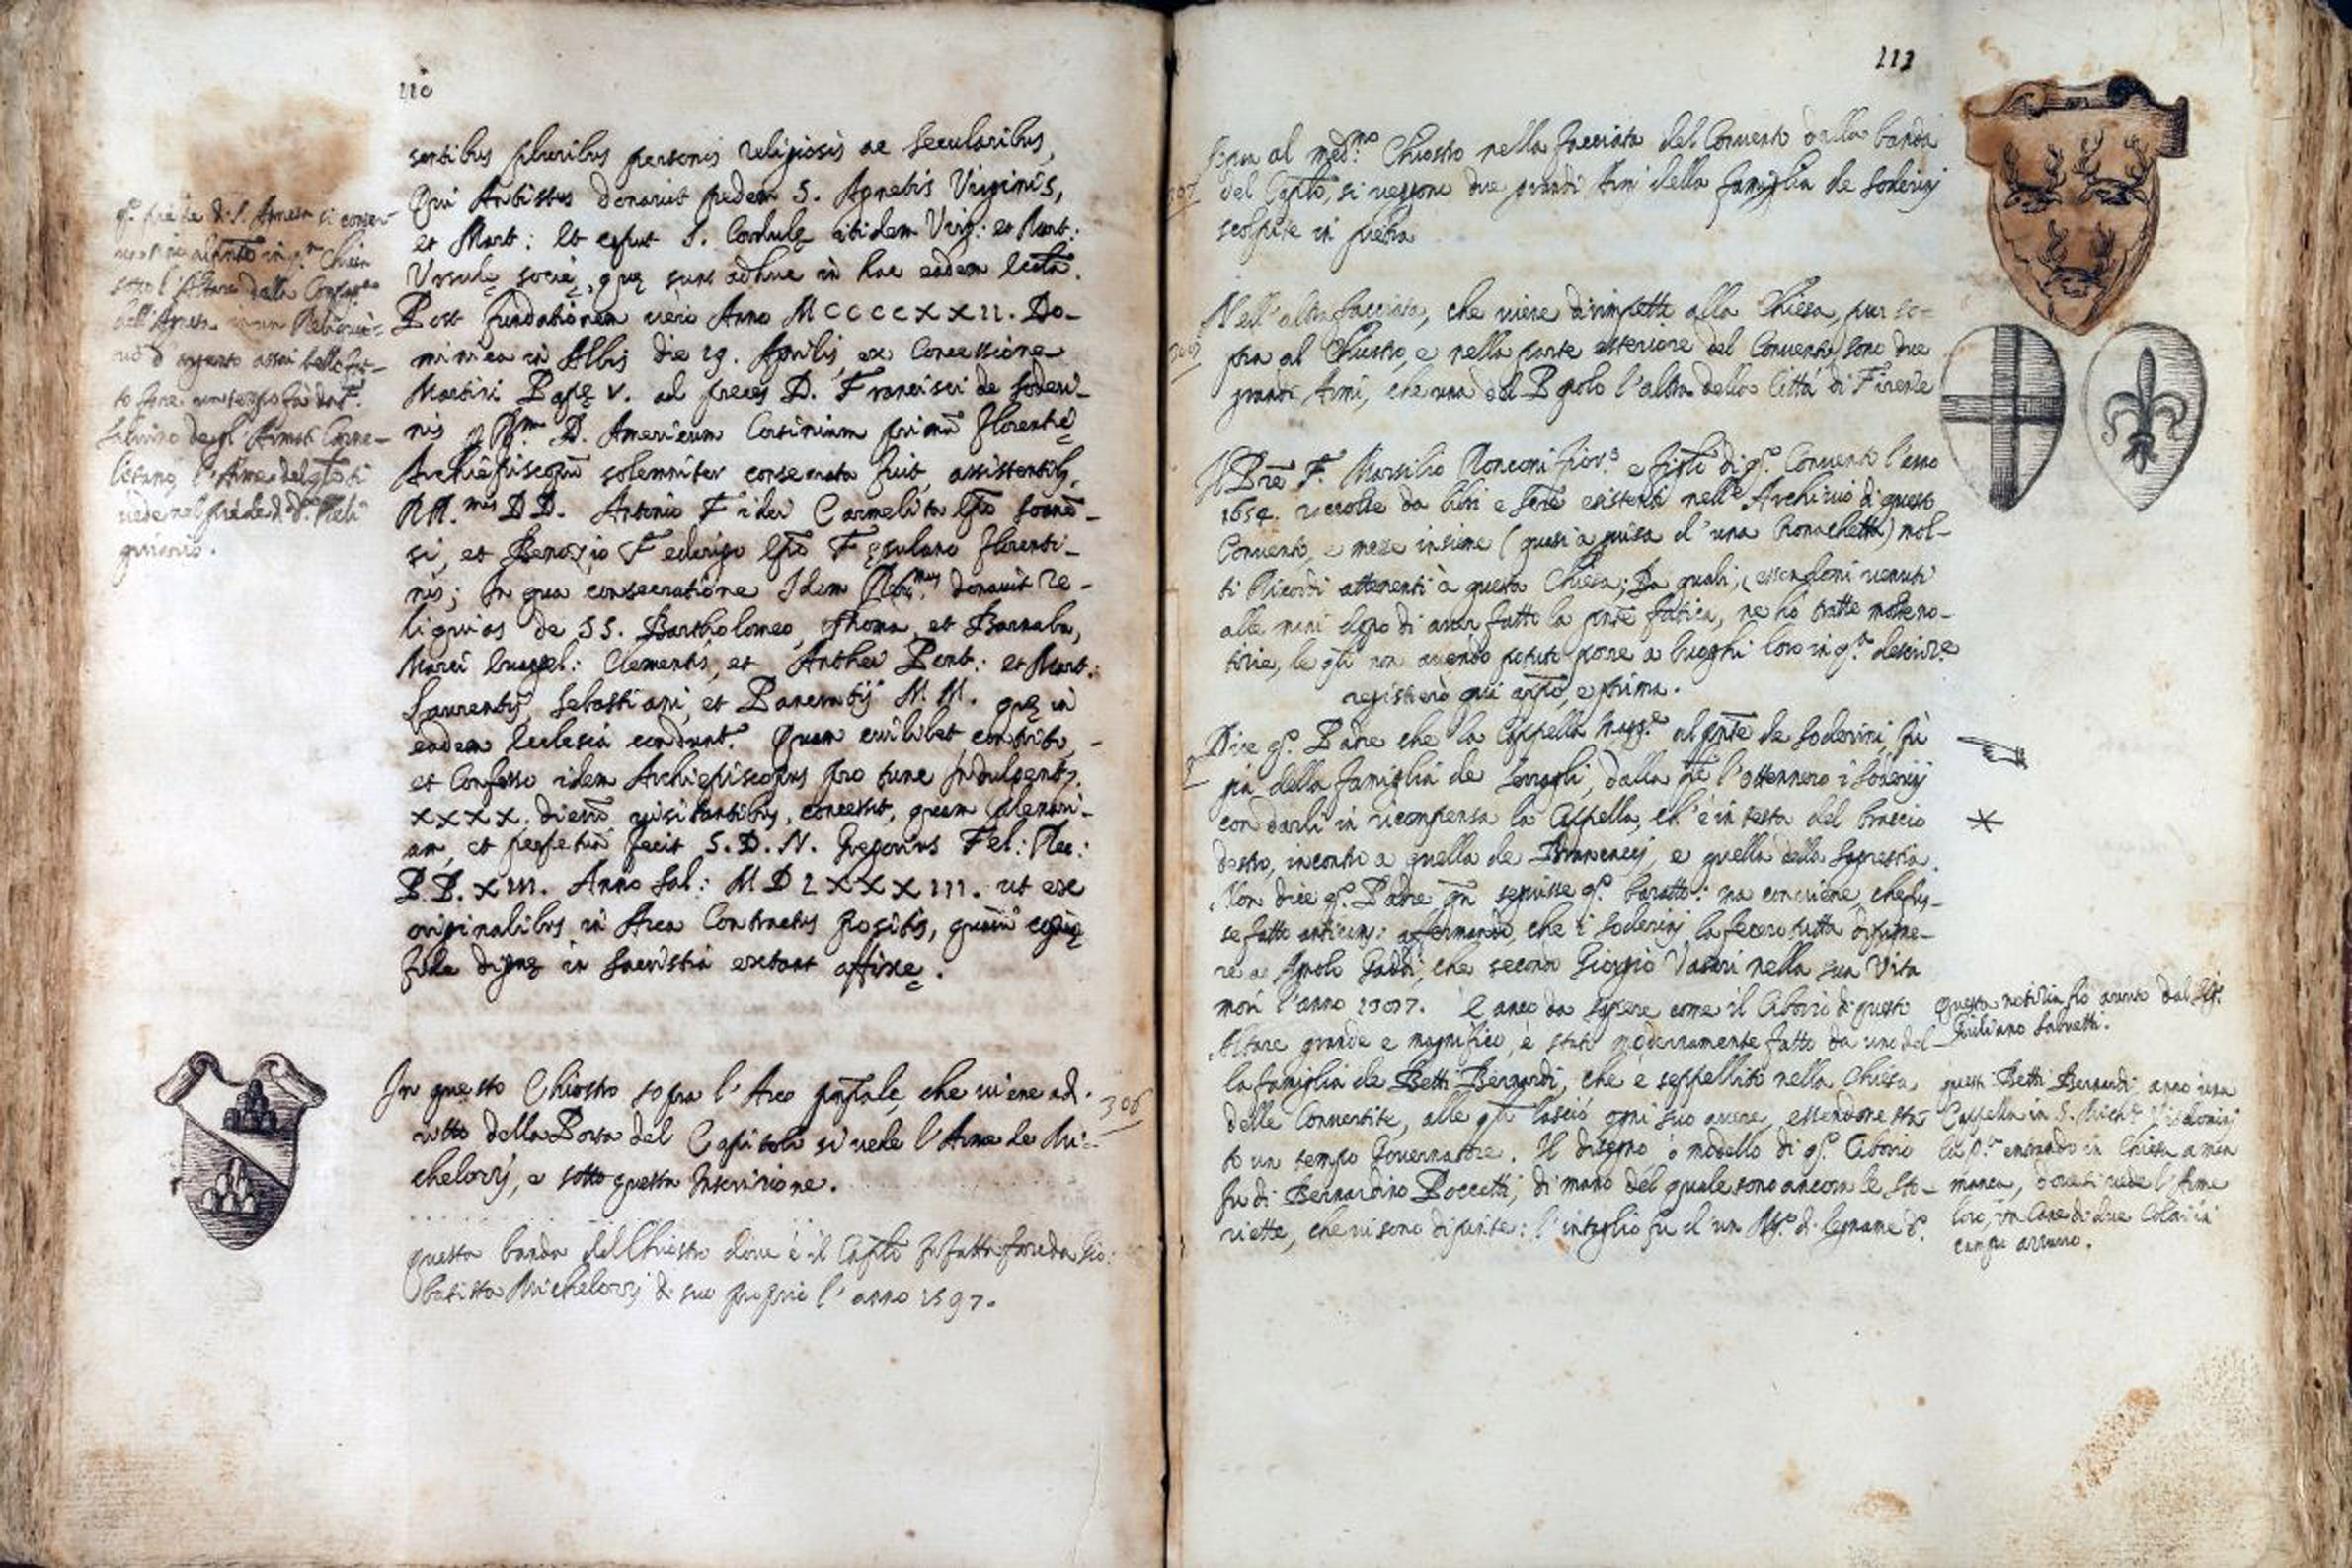 110
sentibus pluribus personis religiosis ac secularibus,
Qui Antistes donavit pedem S. Agnetis Virginis,
et Mart: Et caput S. Cordulę itidem Virg: et Mart:
Ursulę socię, quę sunt adhuc in hac eadem Eccla.
Post fundationem vero Anno MCCCCXXII. Do-
minica in Albis die 19. Aprilis, ex Concessione
Martini Papę V. ad preces D. Francisci de Soderi-
nis p R.m D. Americum Corsinium primū Florentię
Archiepiscopū solemniter consecrata fuit, assistentib.
RR.mis DD. Antonio Carmelita Epō
si, et Benozio Federigo Epō Fęsulano Florenti-
nis; In qua consecratione Idem donavit re-
liquias de SS. Bartholomeo, Thoma, et Barnaba,
Marci Evagel: Clementis, et Antheri Pont: et Mart:
Laurentij, Sebastiani, et Pancratij M. M. quę in
eadem Ecclesia condunt.r Quam cuilibet contrito,
et Confesso idem Archiepiscopus pro tunc Indulgent.
XXXX. dierū visitantibus, concessit, quam
am, et perpetuā fecit S. D. N. Gregorius Fel: Rec:
P.P. XIII. Anno Sal: MDLXXXIII. ut ex
originalibus in Arca Contractus positis, quarū copię
fide dignę in Sacristia extant affixę.
In questo Chiostro sopra l'Arco che viene ad-
ritto della Porta del Capitolo si vede l'Arme de Mi-
chelozzi, e sotto questa Inscrizione.
306
questa banda del Chiostro dove è il Caplō fu fatta fare da Gio:
batista Michelozzi di suo proprio l'anno 1597.
q.o piede di S. Agnesa si conser-
sotto l'Altare della
dell' Agnesa in un Reliquia-
rio d'argento assai bello fat-
to fare
Salvino degl' Armati Carme-
litano, l'Arme del qle si
vede nel piede di d.o Reli
quiario.
111
Sopra al med.mo Chiostro nella facciata del Convento dalla banda
del Caplō, si veggono due grandi Armi della famiglia de Soderinj
scolpite in pietra
307
Nell'altra facciata, che viene dirimpetto alla Chiesa, pur so-
pra al Chiostro, e nella parte esteriore del Convento, sono due
grandi Armi, che una del Popolo l'altra della Città di Firenze
Il Prē F. Marsilio Ronconi e figlo di q.o Convento l'anno
1654. raccolse da libri e existenti nell'Archivio di questo
Convento, e messe insieme (quasi a guisa d'una Cronachetta) mol-
ti Ricordi attenenti à questa Chiesa; Da quali, essendomi venuti
alle mani dopo di aver fatto la pnte fatica, ne hò tratte molte no-
tizie, le qli non avendo potuto porre a luoghi loro in q.a descriz.e
registrerò qui e prima.
Dice q.o Padre che la Cappella Magg.e al pnte de Soderini, fù
già della famiglia de Serragli, dalla qle l'ottennero i Soderinj
con darli in ricompensa la Cappella, ch'è in testa del braccio
destro, incontro a quella de Brancaccj, e quella della Sagrestia.
Non dice q.o Padre qn seguisse q.o baratto: ma conviene, che fus-
se fatto antico; affermando, che i Soderinj la fecero tutta dipigne-
re a Agnolo Gaddi, che secondo Giorgio Vasari nella sua Vita
morì l'anno E anco da sapere come il Ciborio di questo
Altare grande e magnifico, è stato modernamente fatto da uno del-
la famiglia de Betti Bernardi, che è seppellito nella Chiesa
delle Convertite, alle qli lasciò ogni suo avere, essendone sta-
to un tempo Governatore. Il disegno ò modello di q.o Ciborio
fu di Bernardino Poccetti, di mano del quale sono ancora le Sto-
riette, che vi sono dipinte: l'intaglio fu d'un M.o di legname
*
questa notizia ho avuto dal Sig.r
Giuliano
questi Betti Bernardi anno una
Cappella in S. Mich.e Visdominj
entrando in Chiesa a man
manca, dove si vede l'Arme
loro, un Cane di due Colori in
campo azzurro.